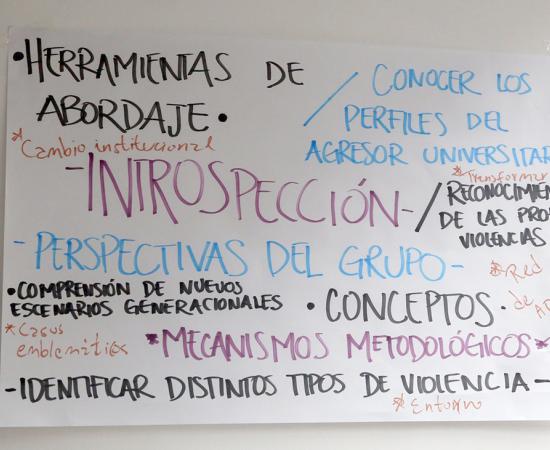 •HERRAMIENTAS DE
ABORDAJE•
/ CONOCER LOS
PERFILES DEL
AGRESOR UNIVERSITAR
*Cambio institucional
*Transformar
-INTROSPECCIÓN-
/ RECONOCIMIEN
DE LAS PRO
VIOLENCIAS
-PERSPECTIVAS DEL GRUPO-
*Red
de
•COMPRENSIÓN DE NUEVOS
ESCENARIOS GENERACIONALES
•CONCEPTOS•
*Casos
emblematics
*MECANISMOS METODOLÓGICOS*
-IDENTIFICAR DISTINTOS TIPOS DE VIOLENCIA-
*Entorno